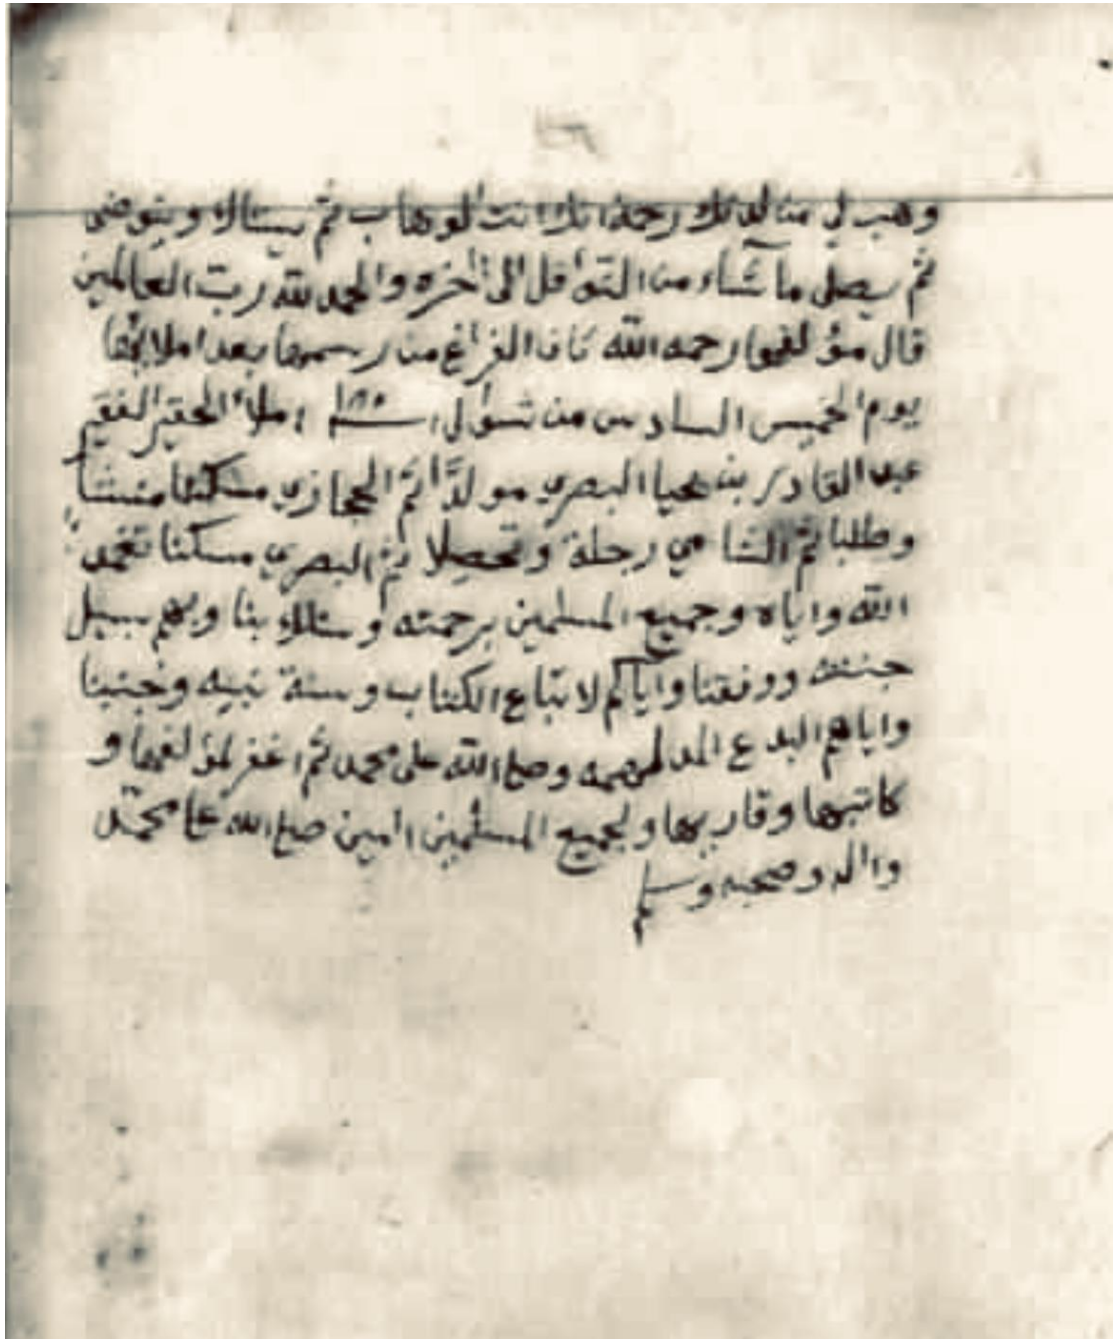 وهب لي من لدنك رحمة انك انت الوهاب ثم يستاك ويتوضى
ثم يصلى ما شاء من النوافل الى اخره والحمد لله رب العالمين
قال مؤلفها رحمه الله كان الفراغ من رسمها بعد املائها
يوم الخميس السادس من شوال املاء الحقير الفقير
عبد القادر بن يحيا البصري مولدًا ثم الحجازي مسكنا منشأ
وطلبا ثم الشامي رحلة وتحصيلا ثم البصري مسكنا تغمد
الله واياه وجميع المسلمين برحمته وسلك بنا وبهم سبيل
جنته ووفقنا واياكم لاتباع الكتاب وسنة نبيه وجنبنا
واياهم البدع المدلهمه وصلى الله على محمد ثم اغفر لمؤلفها و
كاتبها وقاريها ولجميع المسلمين امين صلى الله على محمد
واله وصحبه وسلم